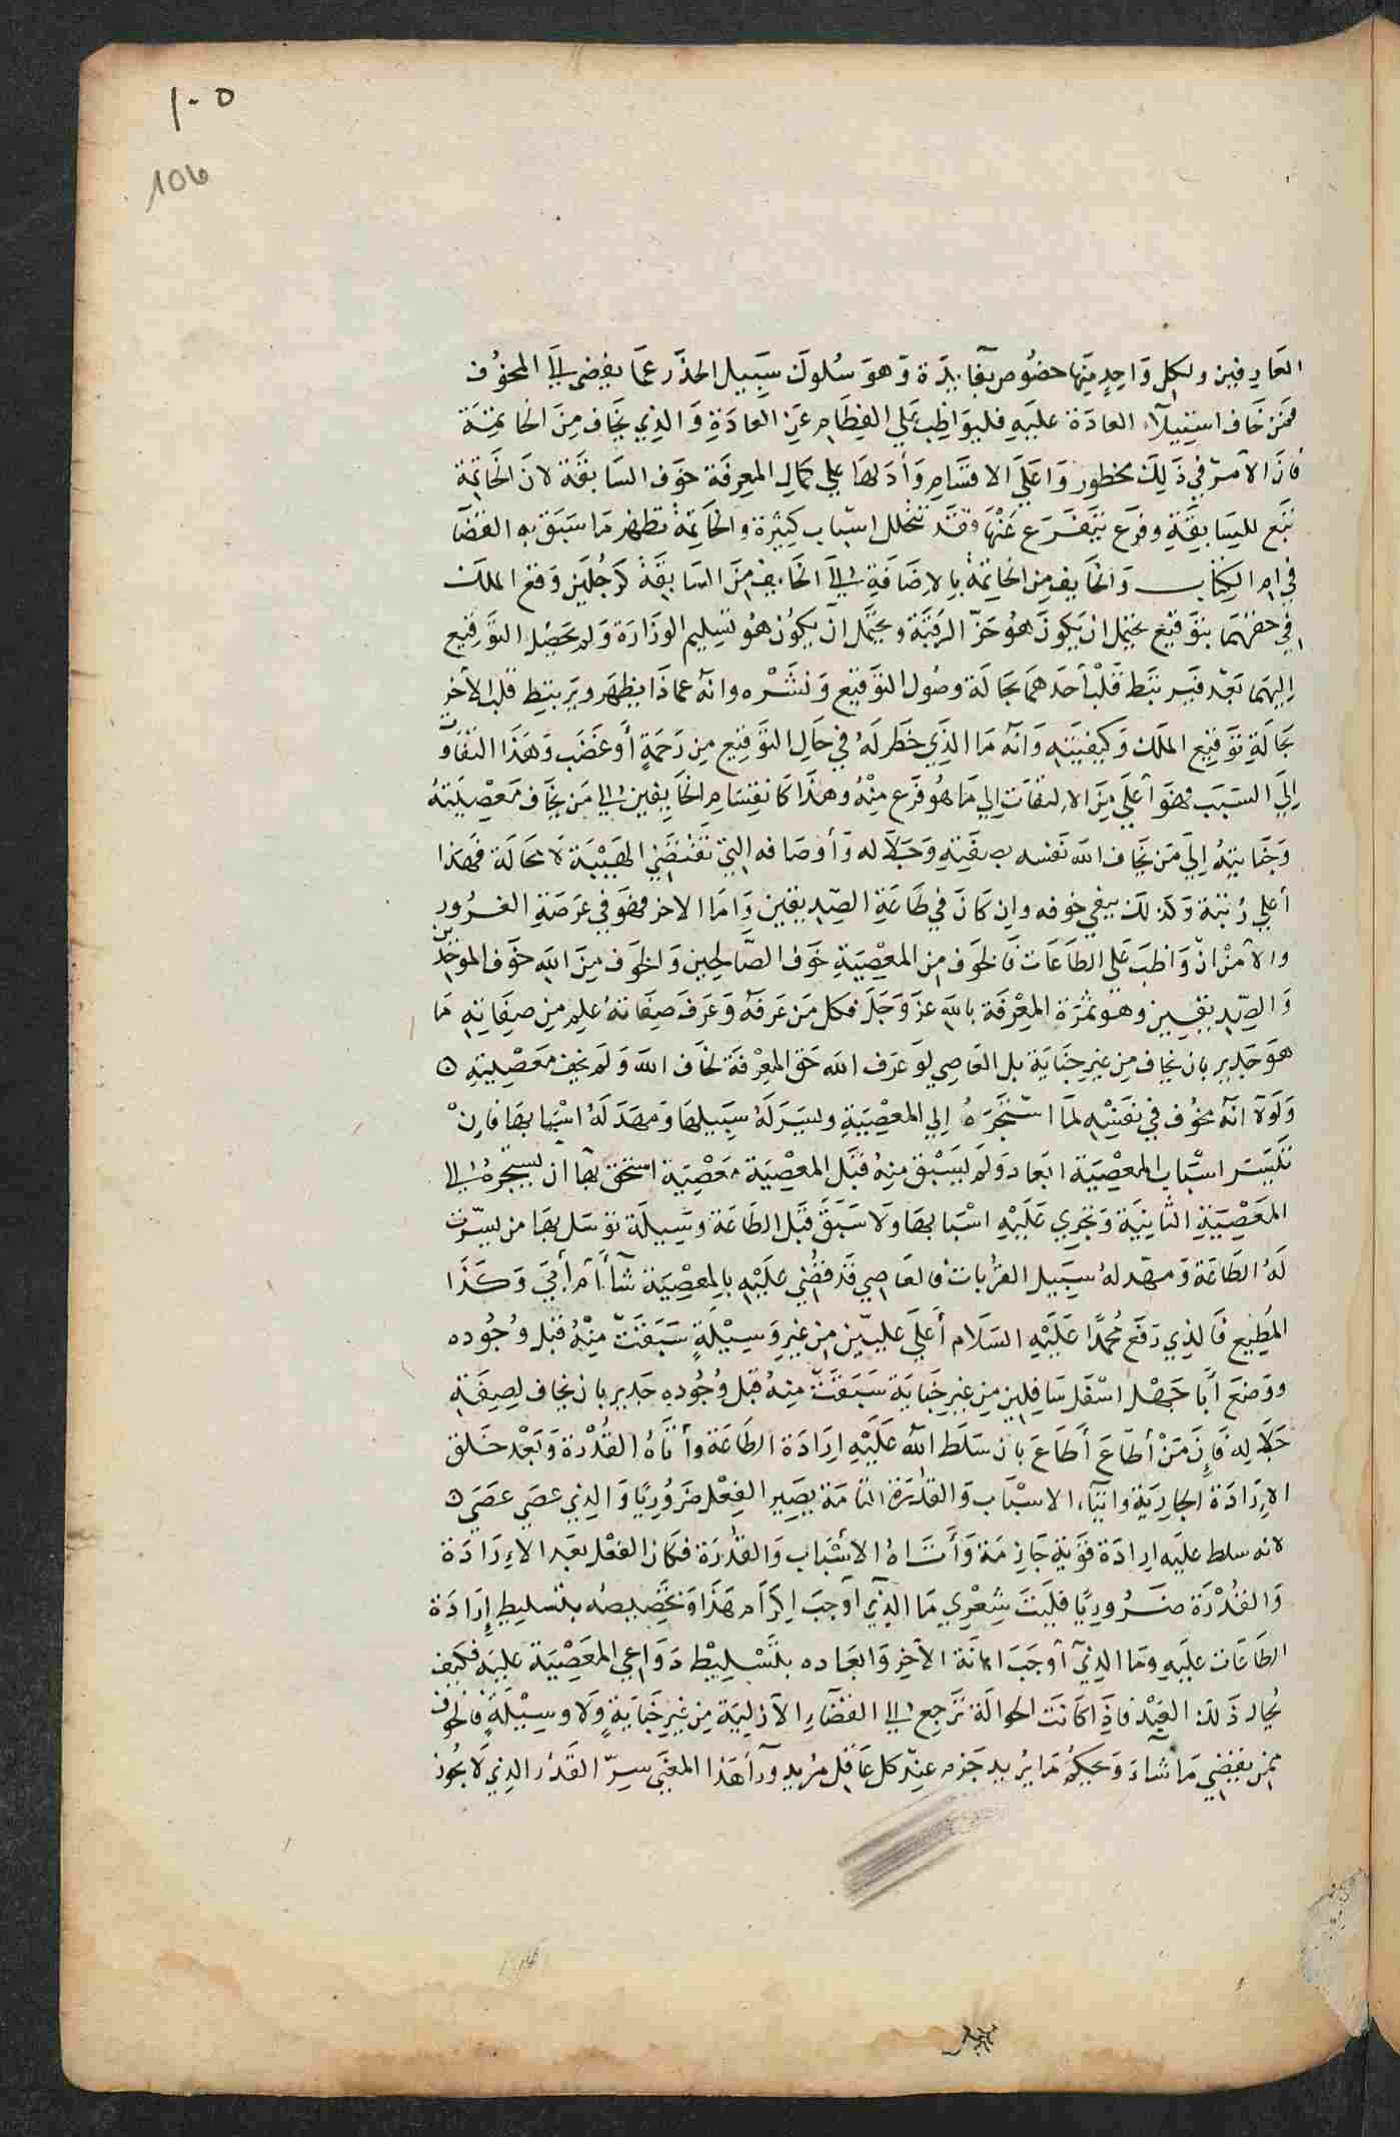 ١٠٥
106
العَارفين ولكل وَاحِدٍ مِنهَا خصُوص بفَايدَة وَهوَ سُلوك سَبيل الحذَر عمَا يفضي الى المخوُف
فمَن خَاف استيلآء العادَة عليَهِ فليوَاظِب عَلي الفِطَام عَن العادَةِ وَالذِي يَخَاف مِنَ الخاتمَة
فان الآمرّ في ذَلِك مخطور وَاعَلي الاقسَام وَأدَلهَا علي كمَالِ المعرِفَة خوَف السَابقَة لانَ الخَاتِمة
تتبَع للسَابِقَةِ وفرَع يتَفَرَع عَنْهَا وقَد تتخلل اسبَاب كثِيرَة وَالخَاتِمَة تظهر مَا سَبَق به القضَا
في ام الكِتاب وَالخَايف مِن الخاتِمَة بِالاِضَافَةِ الي الخَايف مِنَ السَابِقَة كَرَجُلَين وَقع الملك
في حقهمَا بتوَقيْع يحتمل ان يَكونَ هُوَ حَزّ الرَقبَة ويحتَمَل ان يكوُن هُوَ تسليم الوزَارَة وَلم يَصِل التوَقيع
اِليهمَا بَعد فيَرتبَط قَلْب أحَدهمَا بحَالَة وصُول التوَقيْع وَنشَرْه وانهَ عما ذَا يظهَر ويرَبتِط قلب الآخر
بحَالَةِ توَقيع الملك وَكيفيتَهِ وَانَه مَا الذَي خطَر لَهُ في حَالِ التوَقيع مِن رَحمَةٍ أو غضَب وَهَذَا التفاوت
اِلي السَبَب فهوَ أعَلي مِن الالتفات اِلي مَا هُو فرَع مِنْهُ وهذَا كَانقِسَام الخَايفين الي مَن يخَاف مَعصْيَتهُ
وَجنَايتهُ اِلي مَن يخَاف اللَه نَفسه بصفتِهِ وَجلاَله وَأوصَافه التِي تقتَضِي الهَيْبَة لا محَالَة فهَذا
أعلي رُتبَة وَكذلك يبقي خوفه وان كَان في طَاعَةِ الصِّديقين وَامَا الاخر فهوَ في عَرصَةِ الغرُور
والامنْ انّ وَاظبَ عَلي الطَاعَات فَالخوَف مِن المعصِيَةِ خوَف الصَّالحِين وَالخوَف مِنَ اللَه خوَف الموحّدين
وَالصِديقِين وهوَ ثمرَة المعِرْفَة باللَه عزَ وَجَلَ فكل مَن عَرفَهُ وَعَرفَ صِفَاتهُ علم مِن صِفَاتِهِ مَا
هوَ جَدير بان يخاف مِن غَير جنَايَة بل العَاصِي لوَ عَرف اللَه حَق المعِرْفَة لخَاف اللَه وَلَم يخف مَعصْيَتِهِ ه
وَلَوَلا انَه مخوُف في نفسَهِ لمَا استَجرَهُ اِلي المعصِيَةِ ويسَرَ لَهُ سَبيلهَا وَمهدَ لَهُ اسْبَابهَا فَان
تيسَر اسْبَاب المعصْيَة ابعَاد وَلَم يَسَبْق مِنهُ قبَل المعصْيَة مَعصِيَة استحق بهَا ان يسَتجرهُ الي
المعَصْيَةِ الثانِيَة وَتجرِي عَليَهِ اسْبَابهَا وَلا سَبَق قبَل الطَاعَة وَسِيلَة توَسَل بهَا من يسّرت
لَهُ الطَاعَة وَمهّد لهُ سَبيل القرُبات فالعَاصِي قَد قضُي عَليْهِ بِالمعصِيَة شآَ أَم أبيَ وَكَذَا
المُطِيع فَالذِي رَفعَ مُحمدًا عَلَيْهِ السَلَام أعَلي عليّين مِن غيرِ وَسِيْلَةٍ سَبَقَتْ مِنْهُ قبْل وُجُوده
ووَضعَ أبَا جَهل اسْفَل سَافِلِين مِن غيرِ جنَايَة سَبَقَتْ مِنهُ قبل وُجُودِهِ جَدير بان يخاف لِصِفَةِ
جَلاِله فَاِنَ مَنْ أطَاعَ أطَاعَ بان سَلَط اللَه عَلَيْهِ اِرَادَة الطَاعَة وأتَاهُ القُدْرة وَبَعْد خَلق
الاِرَادَة الجازِمَة وَايتَآ الاسْبَاب وَالقدْرَة التامَة يصَير الفِعْل ضَرُوريًا وَالذِي عصَي عصَي ه
لانه سلط عليَه اِرادَة قوَيةٍ جَازِمَة وَأتَاهُ الأسْبَاب وَالقدْرَة فكَان الفعْل بعَد الاِرَادَة
وَالقُدْرَة ضَرُورِيًا فليَتَ شِعْرِي مَا الذِي أوجبَ اِكرَام هَذَا وَتخصِيصُه بتسليطِ إرَادَة
الطَاعَات عليَهِ ومَا الذِي أوجَبَ اهَانَة الآخرِ وَابعَاده بتسْلِيْط دَوَاعِي المعَصْيَة عليَه فكيَف
يُحال ذَلك العَبْد فاذَا كَانَت الحوالَة ترَجع الي القضَآءِ الأزليَة مِن غيرِ جنَايَةٍ وَلا وسِيْلَةٍ فالخوف
ممن يقضِي مَا شاءَ وَيحكُم مَا يُريد جَزم عِند كل عَاقل مرُيد ورَاءَ هَذا المعَني سِرّ القَدَر الذِي لَا يجوُز